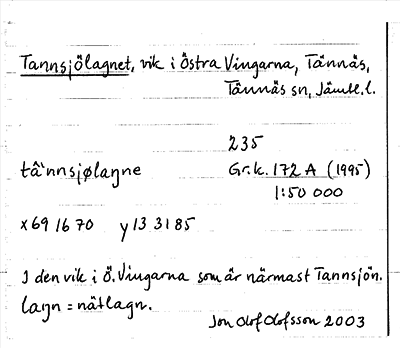 Tannsjölagnet, vik i Östra Vingarna, Tännäs,
Tännäs sn, Jämtl. l.
235
tä̂nnsjølaŋne Gr.k. 172 A (1995)
1:50 000
x 69 16 70 y 13 31 85
I den vik i Ö. Vingarna som är närmast Tannsjön.
laŋn = nätlagn.
Jon Olof Olofsson 2003